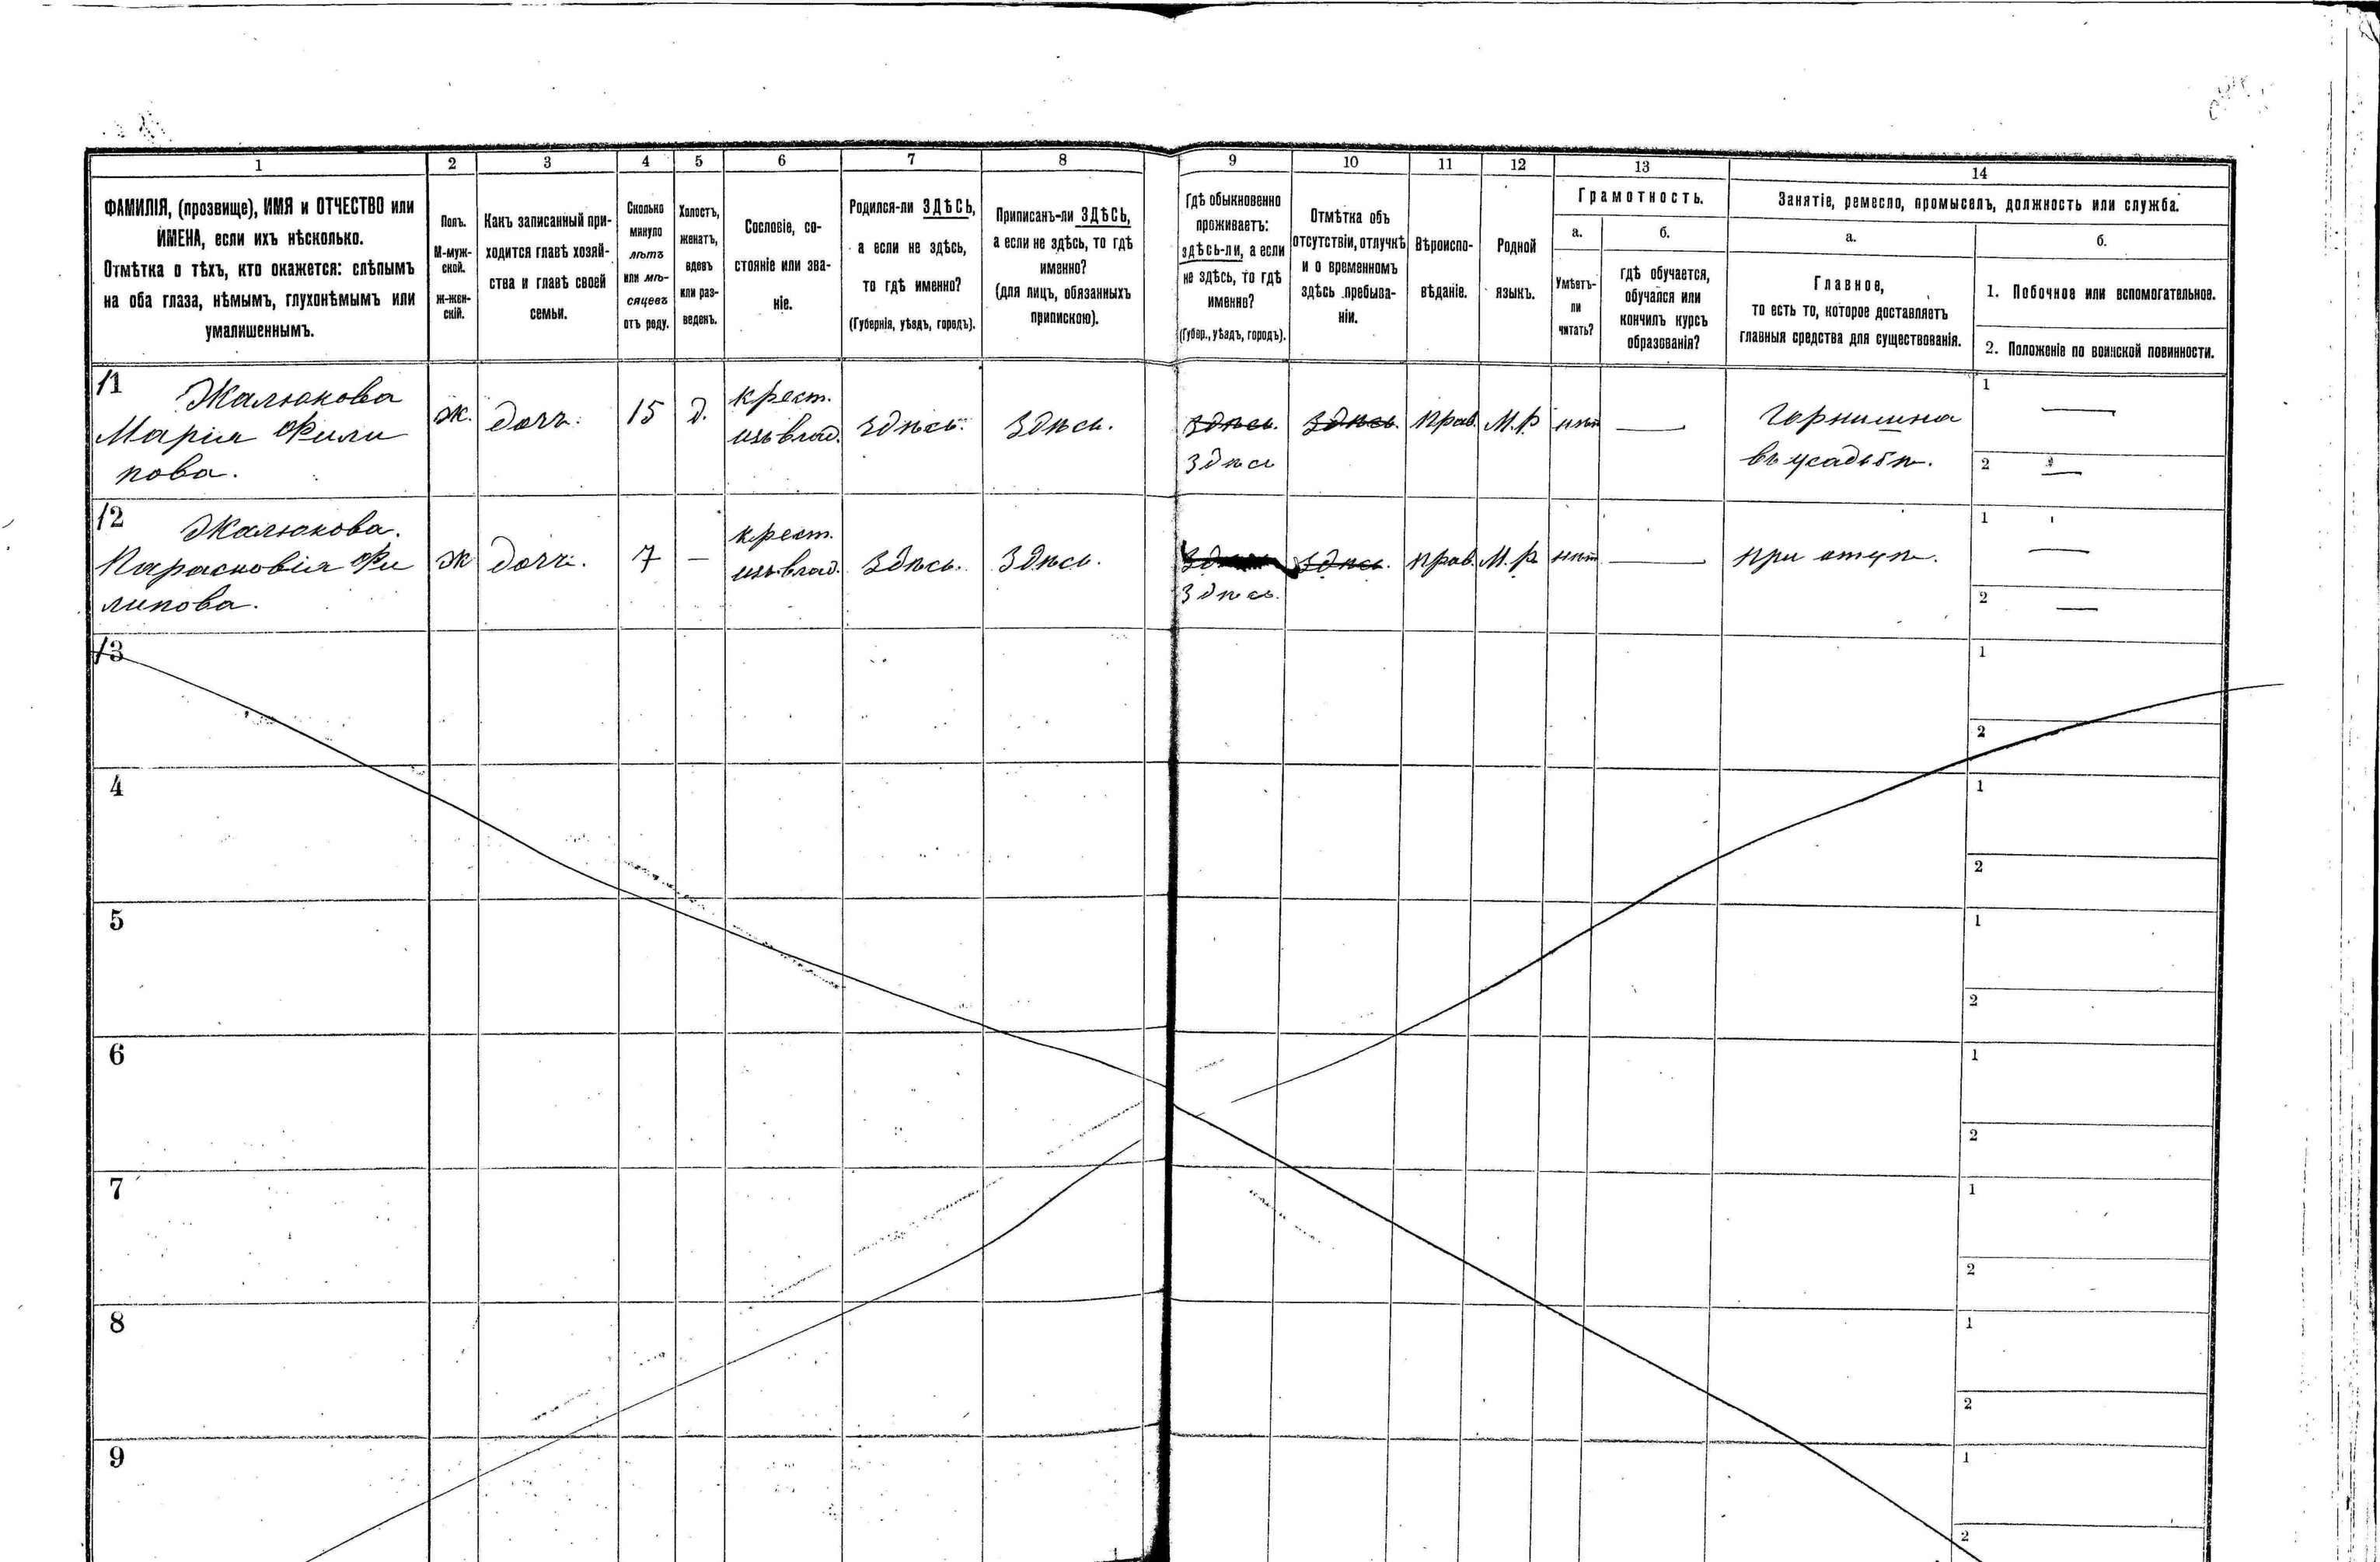 1
2
3
4
5
6
7
8
9
10
11
12
13
14
ФАМИЛІЯ, (прозвище), ИМЯ и ОТЧЕСТВО или
ИМЕНА, если ихъ нѣсколько.
Отмѣтка о тѣхъ, кто окажется: слѣпымъ
на оба глаза, нѣмымъ, глухонѣмымъ или
умалишеннымъ.
Полъ.
М-муж-
ской.
Ж-жен-
скій.
Какъ записанный при-
ходится главѣ хозяй-
ства и главѣ своей
семьи.
Сколько
минуло
лѣтъ
или мѣ-
сяцевъ
отъ роду.
Холостъ,
женатъ,
вдовъ
или раз-
веденъ.
Сословіе, со-
стояніе или зва-
ніе.
Родился-ли ЗДѢСЬ,
а если не здѣсь,
то гдѣ именно?
(Губернія, уѣздъ, городъ).
Приписанъ-ли ЗДѢСЬ,
а если не здѣсь, то гдѣ
именно?
(для лицъ, обязанныхъ
припискою).
Гдѣ обыкновенно
проживаетъ:
здѣсь-ли, а если
не здѣсь, то гдѣ
именно?
(Губер., уѣздъ, городъ).
Отмѣтка объ
отсутствіи, отлучкѣ
и о временномъ
здѣсь пребыва-
ніи.
Вѣроиспо-
вѣданіе.
Родной
языкъ.
Грамотность.
а.
Умѣетъ-
ли
читать?
б.
гдѣ обучается,
обучался или
кончилъ курсъ
образованія?
Занятіе, ремесло, промыселъ, должность или служба.
а.
Главное,
то есть то, которое доставляетъ
главныя средства для существованія.
б.
1. Побочное или вспомогательное.
2. Положеніе по воинской повинности.
11
Жалюкова
Марія Фили
пова.
ж.
дочь.
15
д.
крест.
изъ влад.
здѣсь.
здѣсь.
здѣсь.
здѣсь
здѣсь.
прав.
М.р
нѣт
Горнишна
въ усадьбѣ.
1
2
12
Жалюкова.
Парасковія Фи
липова.
ж
дочь.
7
—
крест.
изъ влад.
здѣсь.
здѣсь.
здѣсь.
здѣсь.
прав.
М.р
нѣт
при отцѣ.
1
2
13
1
2
4
1
2
5
1
2
6
1
2
7
1
2
8
1
2
9
1
2